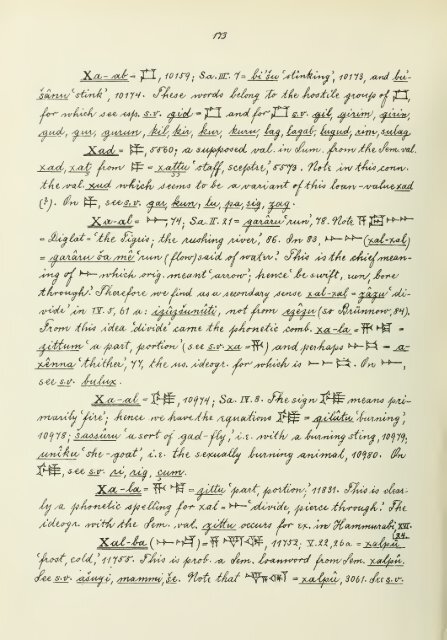 173
Xa-ab = 𒆸, 10159; Sa. III. 7 = bi'šu 'stinking', 10173, and bu'-
šânu 'stink', 10174. These words belong to the hostile group of 𒆸,
for which see esp. s.v. gid = 𒆸 and for 𒆸 s.v. gil, girim, girin,
gud, gur, gurun, kil, kir, kur, kuru, lag, lagab, lugud, rim, sulag
Xad = 𒉺, 5560; a supposed val. in Sum. from the Sem. val.
xad, xaṭ from 𒉺 = xaṭṭu 'staff, sceptre,' 5573. Note in this conn.
the val. xud which seems to be a variant of this loan-value xad
(?). On 𒉺, see s.v. gar, kun, lu, pa, sig, zag.
Xa-al = 𒄬, 74; Sa. II. 21 = garâru 'run', 78. Note
= Diglat - 'the Tigris; the rushing river', 86. On 83, 𒄬 𒄬 (xal-xal)
= garâru ša mê 'run (flow) said of water.' This is the chief mean-
ing of 𒄬 which orig. meant 'arrow'; hence 'be swift, run, bore
through.' Therefore we find as a secondary sense xal-xal = zâzu 'di-
vide' in IV. 5, 61 a: izûzûniti, not from ezêzu (so Brünnow, 84).
From this idea 'divide' came the phonetic comb. xa-la = 𒄩 𒆷 =
zittum 'a part, portion' (see s.v. xa = 𒄩) and perhaps = a-
xênna 'thither', 77, the us. ideogr. for which is On 𒄬,
see s.v. bulux.
Xa-al = 10974; Sa. IV. 8. The sign means pri-
marily 'fire'; hence we have the equations = qilûtu 'burning',
10978; šassuru 'a sort of gad-fly,' i.e. with a burning sting, 10979;
unîku 'she-goat', i.e. the sexually burning animal, 10980. On
see s.v. ri, rig, cum.
Xa-la = 𒄩 𒆷 = zittu 'part, portion,' 11831. This is clear-
ly a phonetic spelling for xal = 𒄬 'divide, pierce through.' The
ideogr. with the Sem. val. zittu occurs for ex. in Hammurabi, XIII.
24.
Xal-ba 11752; V. 22, 26a = xalpû
'frost, cold,' 11755. This is prob. a Sem. loanword from Sem. xalpû.
See s.v. ašugi, mammi, še. Note that = xalpû, 3061. See s.v.